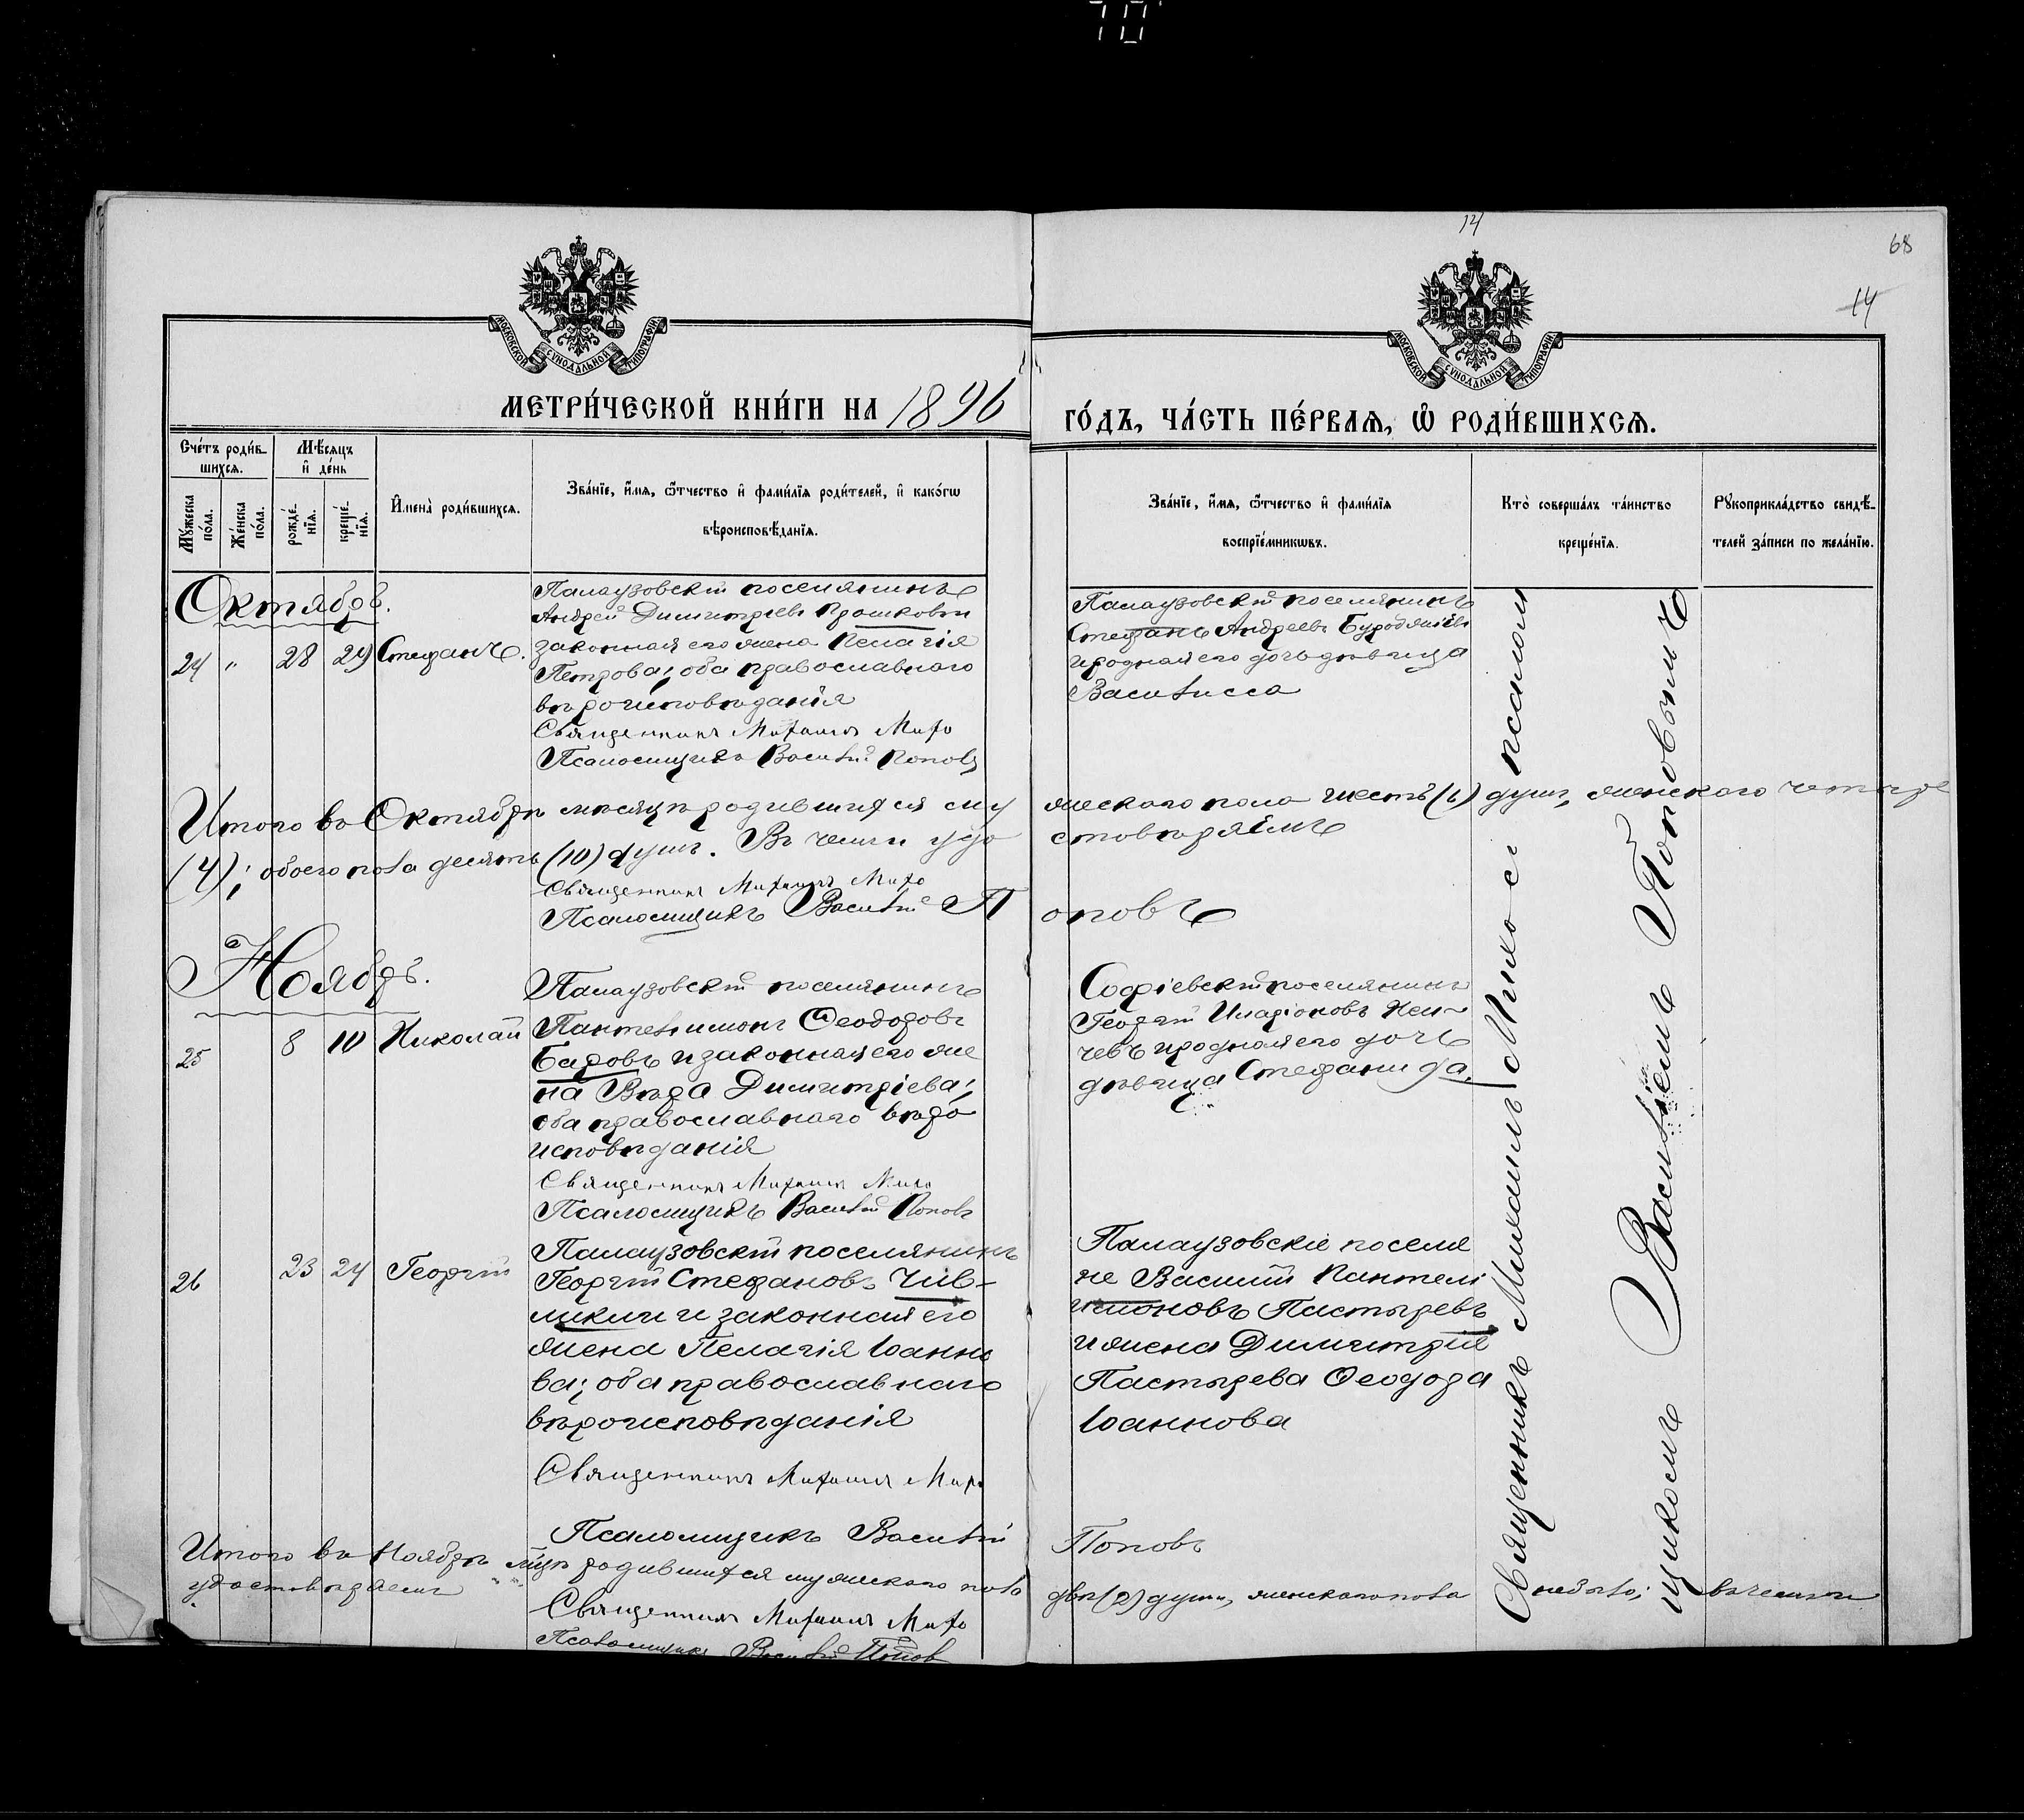 70
14
68
14
МОСКОВСКОЙ СѴНОДАЛЬНОЙ ТИПОГРАФІИ
МОСКОВСКОЙ СѴНОДАЛЬНОЙ ТИПОГРАФІИ
МЕТРИ́ЧЕСКОЙ КНИ́ГИ НА 1896
ГО́ДЪ, ЧА́СТЬ ПЕ́РВАѦ, Ѡ҆ РОДИ́ВШИХСѦ.
Сче́тъ роди́в-
шихсѧ.
Мѣ́сѧцъ
и҆ де́нь
Мꙋ́жеска
по́ла.
Же́нска
по́ла.
рожде́-
нїѧ.
креще́-
нїѧ.
И҆мена̀ роди́вшихсѧ.
Зва́нїе, и҆́мѧ, ѻ҆́тчество и҆ фами́лїѧ роди́телей, и҆ како́гѡ
вѣроисповѣ́данїѧ.
Зва́нїе, и҆́мѧ, ѻ҆́тчество и҆ фами́лїѧ
воспрїе́мникѡвъ.
Кто̀ соверша́лъ та́инство
креще́нїѧ.
Рꙋкоприкла́дство свидѣ́-
телей за́писи по жела́нїю.
Октябрь.
24 " 28 29 Стефанъ.
Палаузовскій поселянинъ
Андрей Димитріевъ
законная его жена Пелагія
Петрова; оба православнаго
вѣроисповѣданія
Священникъ Михаилъ Михо
Псаломщикъ Василій Поповъ
Палаузовскій поселянинъ
Стефанъ Андреевъ
и родная его дочь дѣвица
Василисса
Итого въ Октябрѣ мѣсяцѣ родившихся му жескаго пола шесть (6) душъ, женскаго четыре
(4); обоего пола десять (10) душъ. Въ чемъ и удо стовѣряемъ
Священникъ Михаилъ Михо
Псаломщикъ Василій П оповъ
Ноябрь.
25 8 10 Николай
Палаузовскій поселянинъ
Пантелимонъ Ѳеодоровъ
Баровъ и законная его же
на Вѣра Димитріева;
оба православнаго вѣро
исповѣданія
Священникъ Михаилъ Михо
Псаломщикъ Василій Поповъ
Софіевскій поселянинъ
Георгій Иларіоновъ Нен-
чевъ и родная его дочь
дѣвица Стефанида.
26 23 24 Георгій
Палаузовскій поселянинъ
Георгій Стефановъ Чив-
ликли и законная его
жена Пелагія Іанно
ва; оба православнаго
вѣроисповѣданія
Священникъ Михаилъ Михо
Псаломщикъ Василій Поповъ
Палаузовскіе поселя
не Василій Пантели
имоновъ Пастыревъ
и жена Димитрія
Пастырева Ѳеодора
Іоаннова
Священникъ Михаилъ Михо съ псалом
щикомъ Василіемъ Поповымъ
Итого въ Ноябрѣ мцѣ родившихся мужескаго пола двѣ (2) души, женскаго пола не было; въ чемъ и
удостовѣряемъ
Священникъ Михаилъ Михо
Псаломщикъ Василій Попов